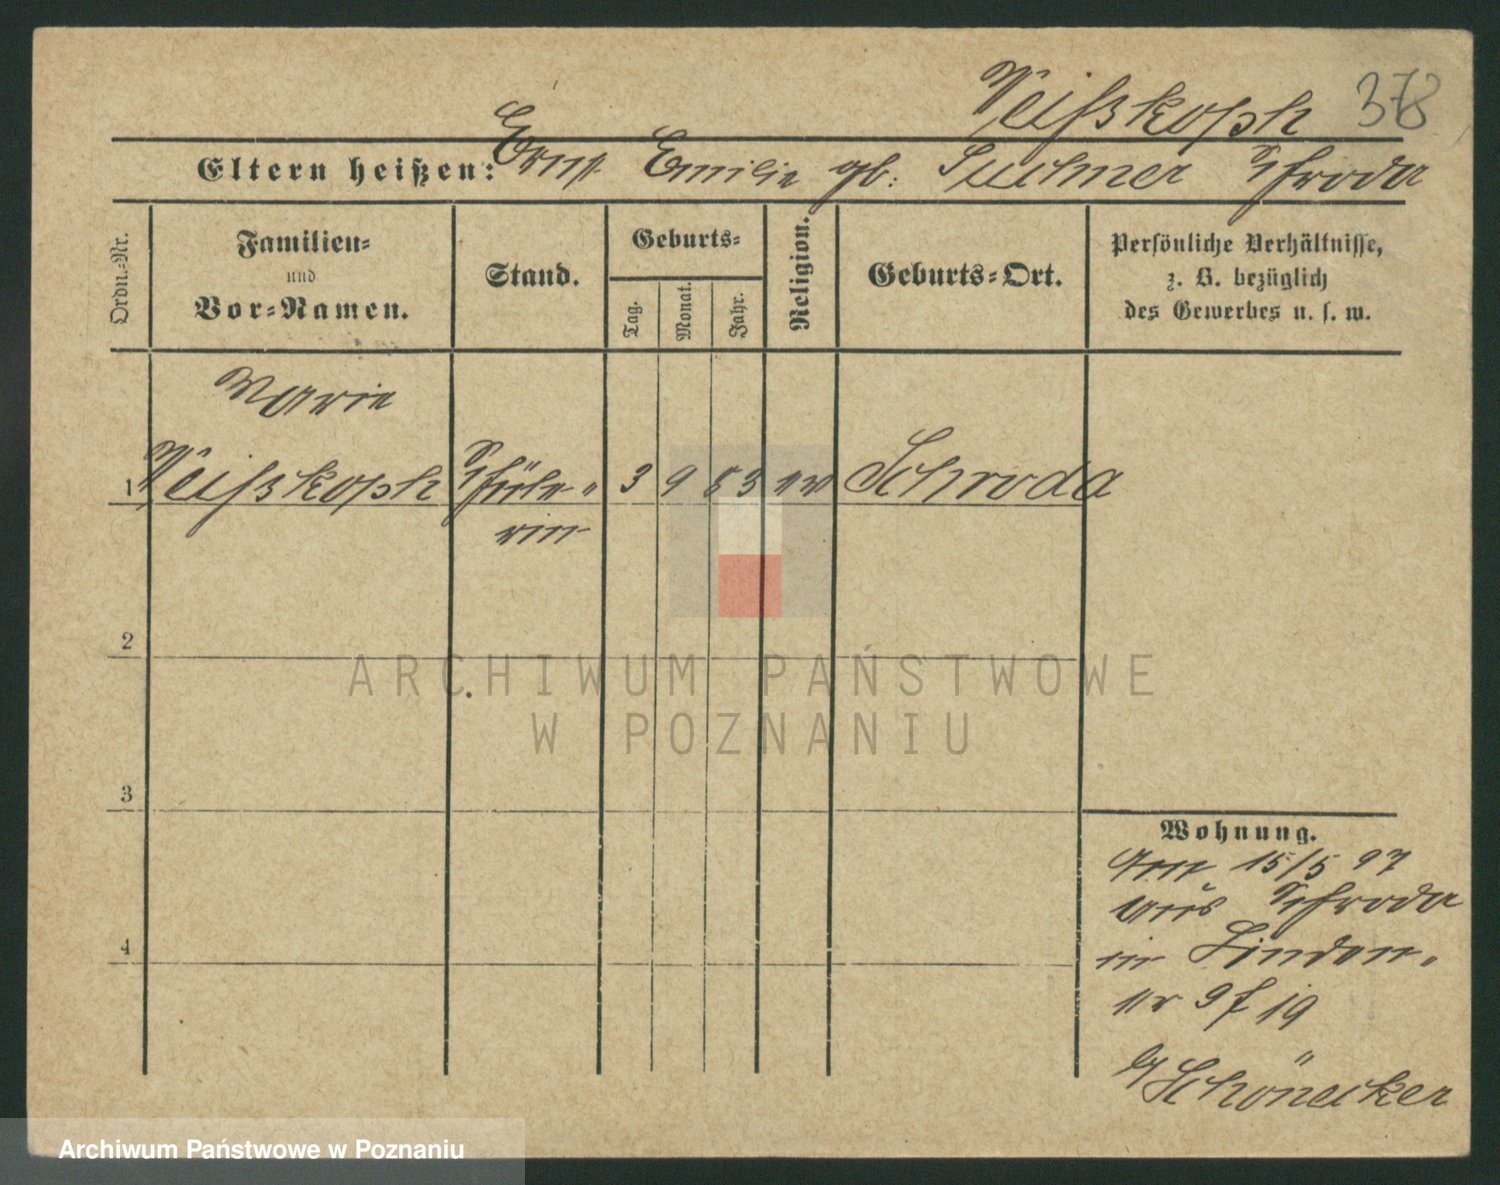 Weißkoph 378
Eltern heißen: Ernst Emilie gb: Suchner Schroda
Ordn.=Nr.
Familien=
und
Vor=Namen.
Stand.
Geburts=
Tag.
Monat.
Jahr.
Religion.
Geburts=Ort.
Persönliche Verhältnisse,
z. B. bezüglich
des Gewerbes u. s. w.
Marie
1 Weißkoph Schüle= 3 9 83 ev Schroda
rin
2
3
4
Wohnung.
Am 15/5 97
aus Schroda
in Linden=
str 9 f 19
b/ Schönecker
ARCHIWUM PAŃSTWOWE
W POZNANIU
Archiwum Państwowe w Poznaniu